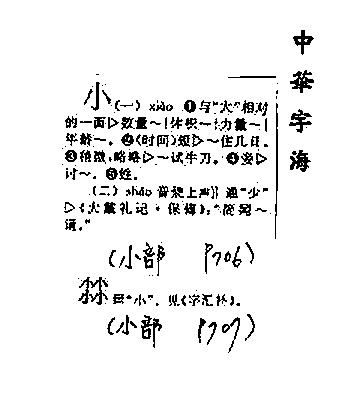 中華字海
小 (一) xiǎo ❶与“大”相对
的一面▷数量～|体积～|力量～|
年龄～。❷(时间)短▷～住几日。
❸稍微,略略▷～试牛刀。❹妾▷
讨～。❺姓。
(二) shǎo 音 上声 通“少”
▷《大戴礼记·保傅》:“ ～
道。”
(小部 P706)
同“小”。见《字汇补》。
(小部 P707)